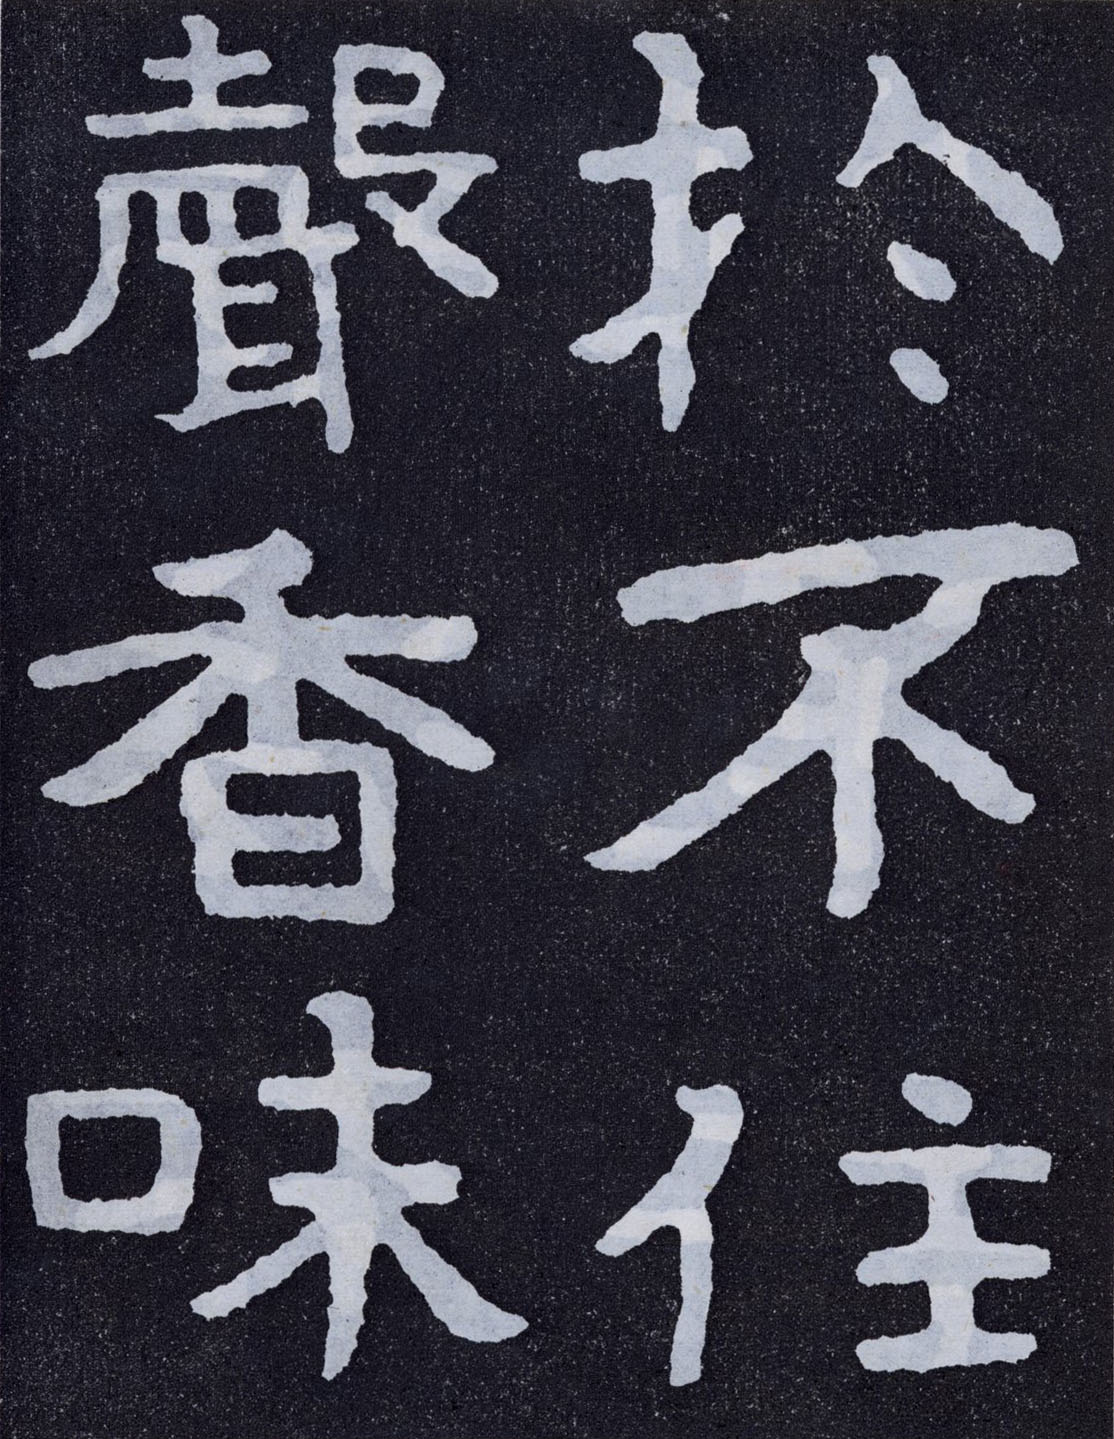 於不住
聲香味